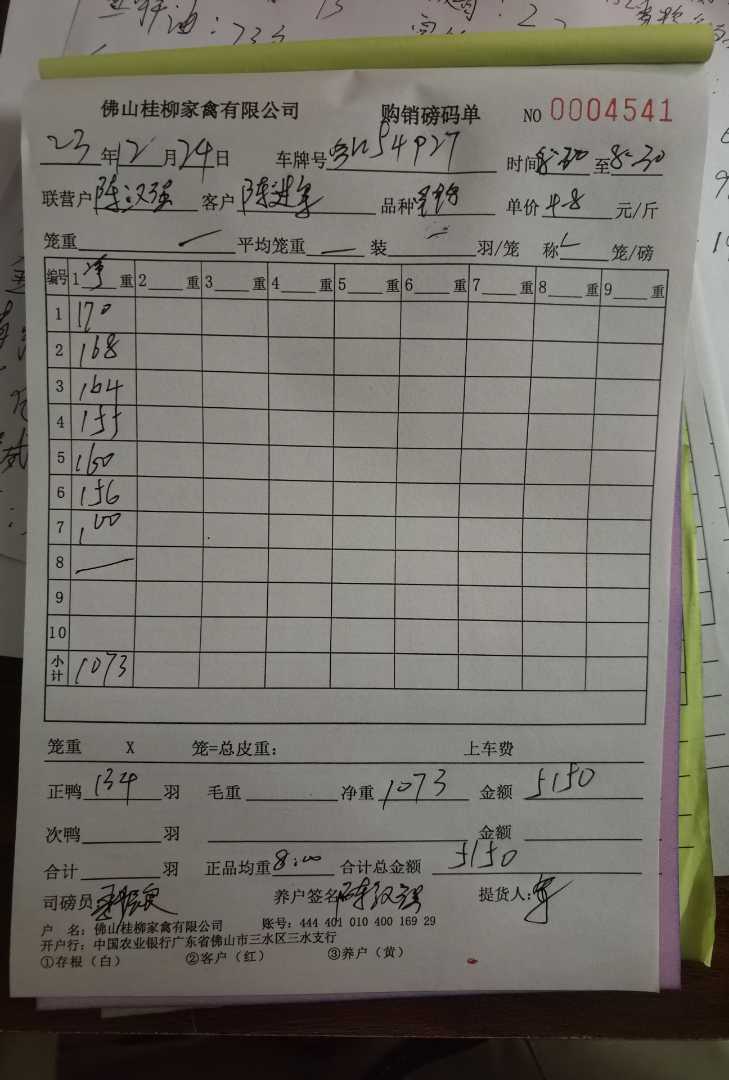 佛山桂柳家禽有限公司 购销磅码单 NO 0004541
23年12月24日 车牌号 54P27 时间8:30至8:30
联营户 陈汉强 客户 陈进军 品种 单价 4.8 元/斤
笼重 — 平均笼重 — 装 = 羽/笼 称 笼/磅
编号 1 净 重 2 重 3 重 4 重 5 重 6 重 7 重 8 重 9 重
1 170
2 168
3 164
4 155
5 160
6 156
7 100
8 —
9
10
小计 1073
笼重 X 笼=总皮重: 上车费
正鸭 134 羽 毛重 净重 1073 金额 5150
次鸭 羽 金额
合计 羽 正品均重 8.00 合计总金额 5150
司磅员 养户签名 陈汉强 提货人: 军
户 名: 佛山桂柳家禽有限公司 账号: 444 401 010 400 169 29
开户行: 中国农业银行广东省佛山市三水区三水支行
①存根(白) ②客户(红) ③养户(黄)